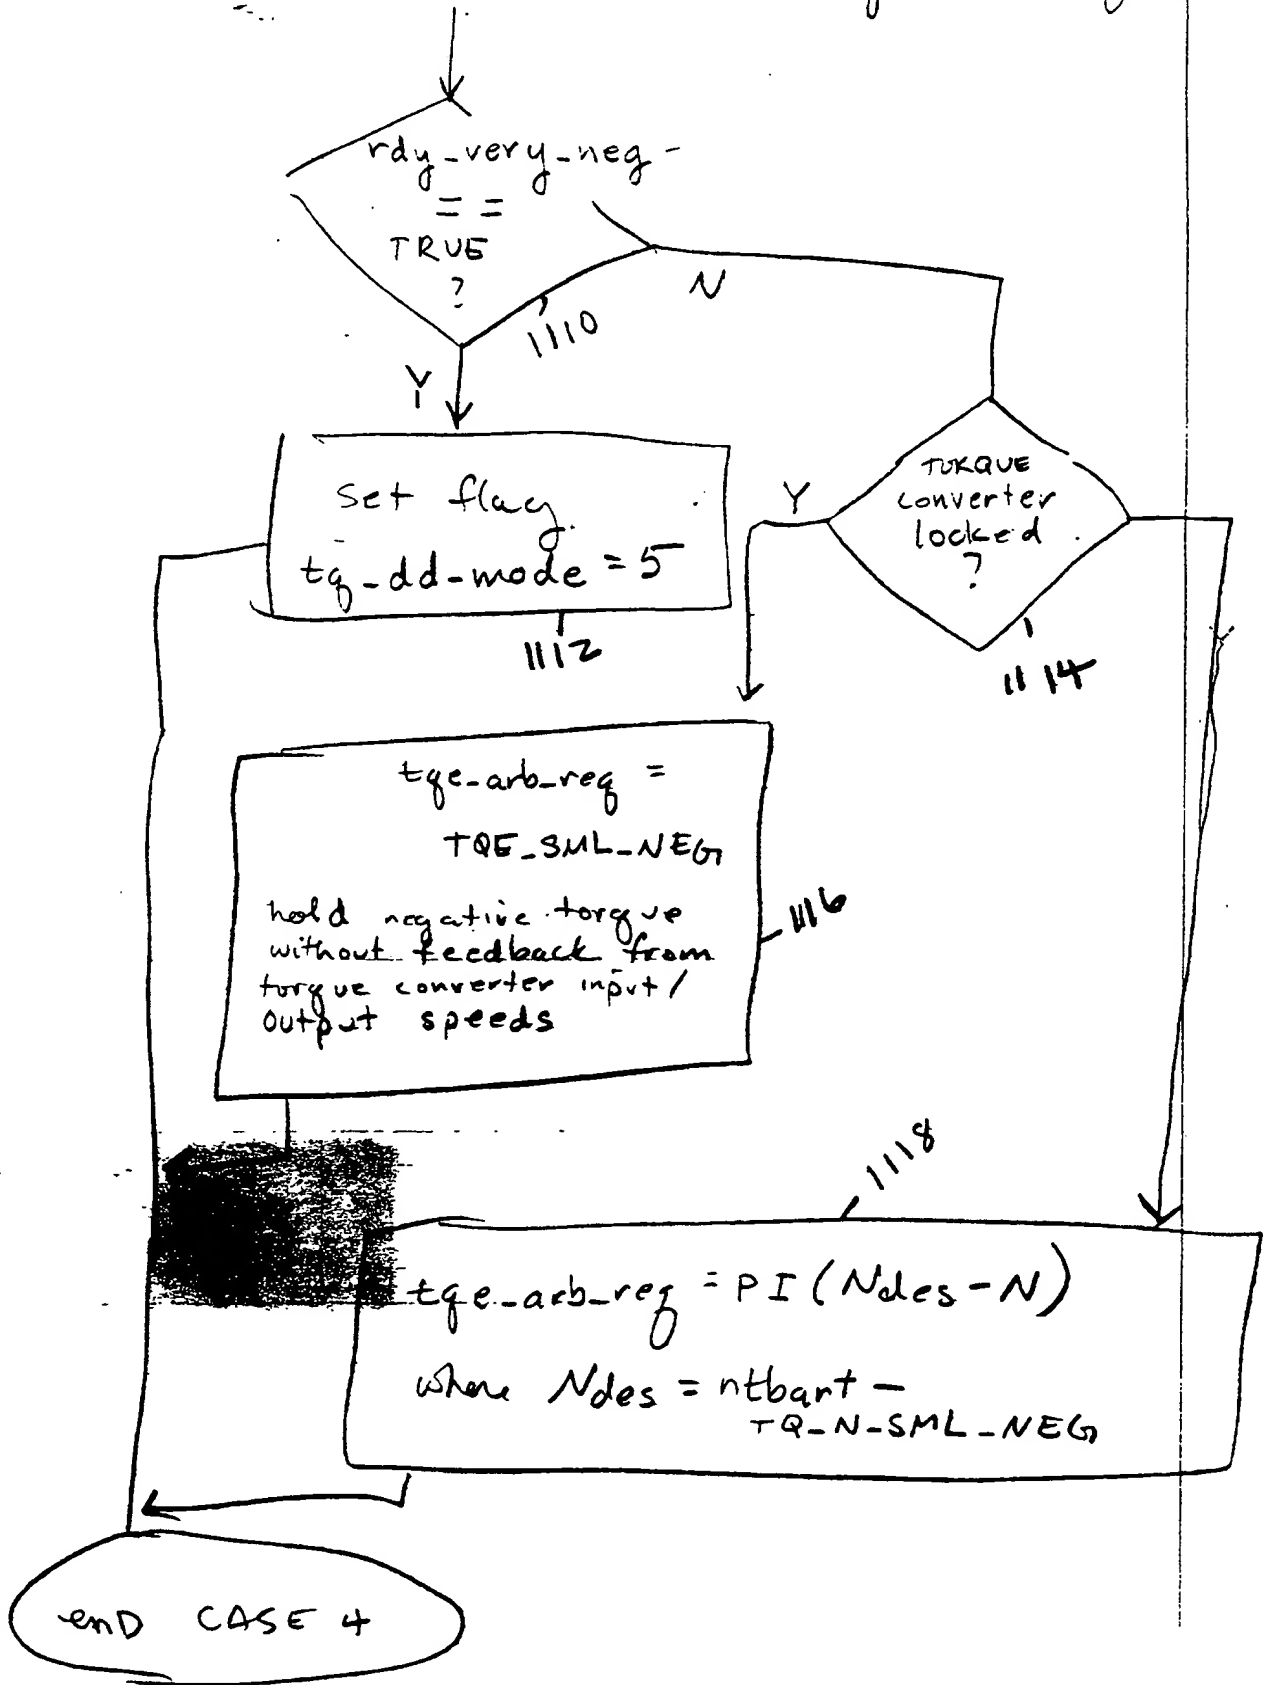 rdy_very_neg -
= =
TRUE
?
N
1110
Y
Set flag
tq_dd_mode = 5
1112
TORQUE
converter
locked
?
Y
1114
tqe_arb_req =
TQE_SML_NEG
hold negative torque
without feedback from
torque converter input/
output speeds
1116
1118
tqe_arb_req = PI (Ndes - N)
where Ndes = ntbart -
TQ_N_SML_NEG
enD CASE 4